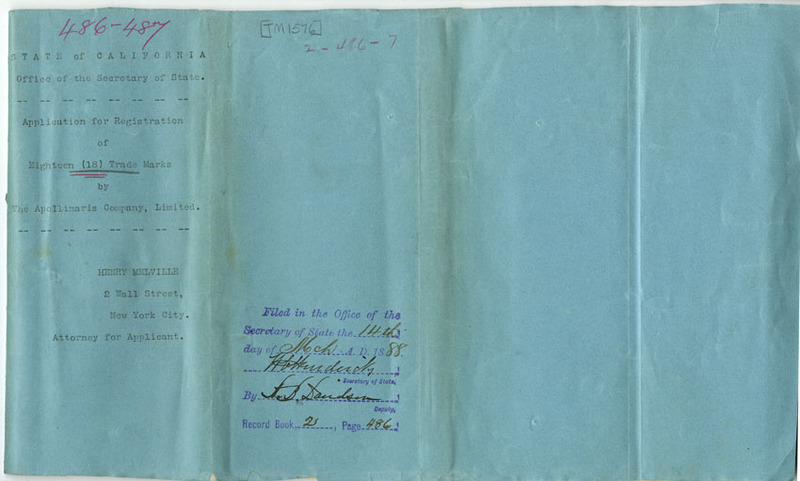 486-487
STATE of CALIFORNIA
Office of the Secretary of State.
-- -- -- -- -- -- -- --
Application for Registration
of
Eighteen (18) Trade Marks
by
The Apollinaris Company, Limited.
-- -- -- -- -- -- -- --
HENRY MELVILLE
2 Wall Street,
New York City.
Attorney for Applicant.
TM1576
2-486-7
Filed in the Office of the
Secretary of State the 14th
day of Mch A. D. 1888.
Secretary of State,
By
Deputy,
Record Book 2, Page 486